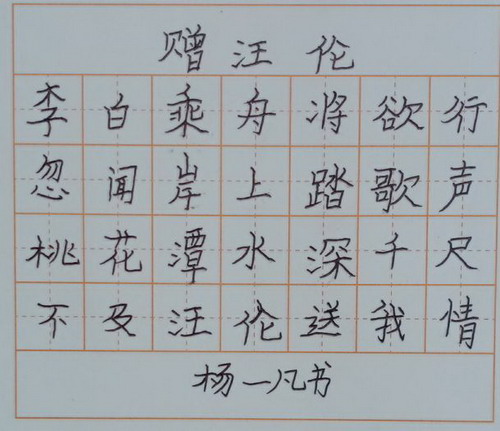 赠汪伦
李白乘舟将欲行
忽闻岸上踏歌声
桃花潭水深千尺
不及汪伦送我情
杨一凡书